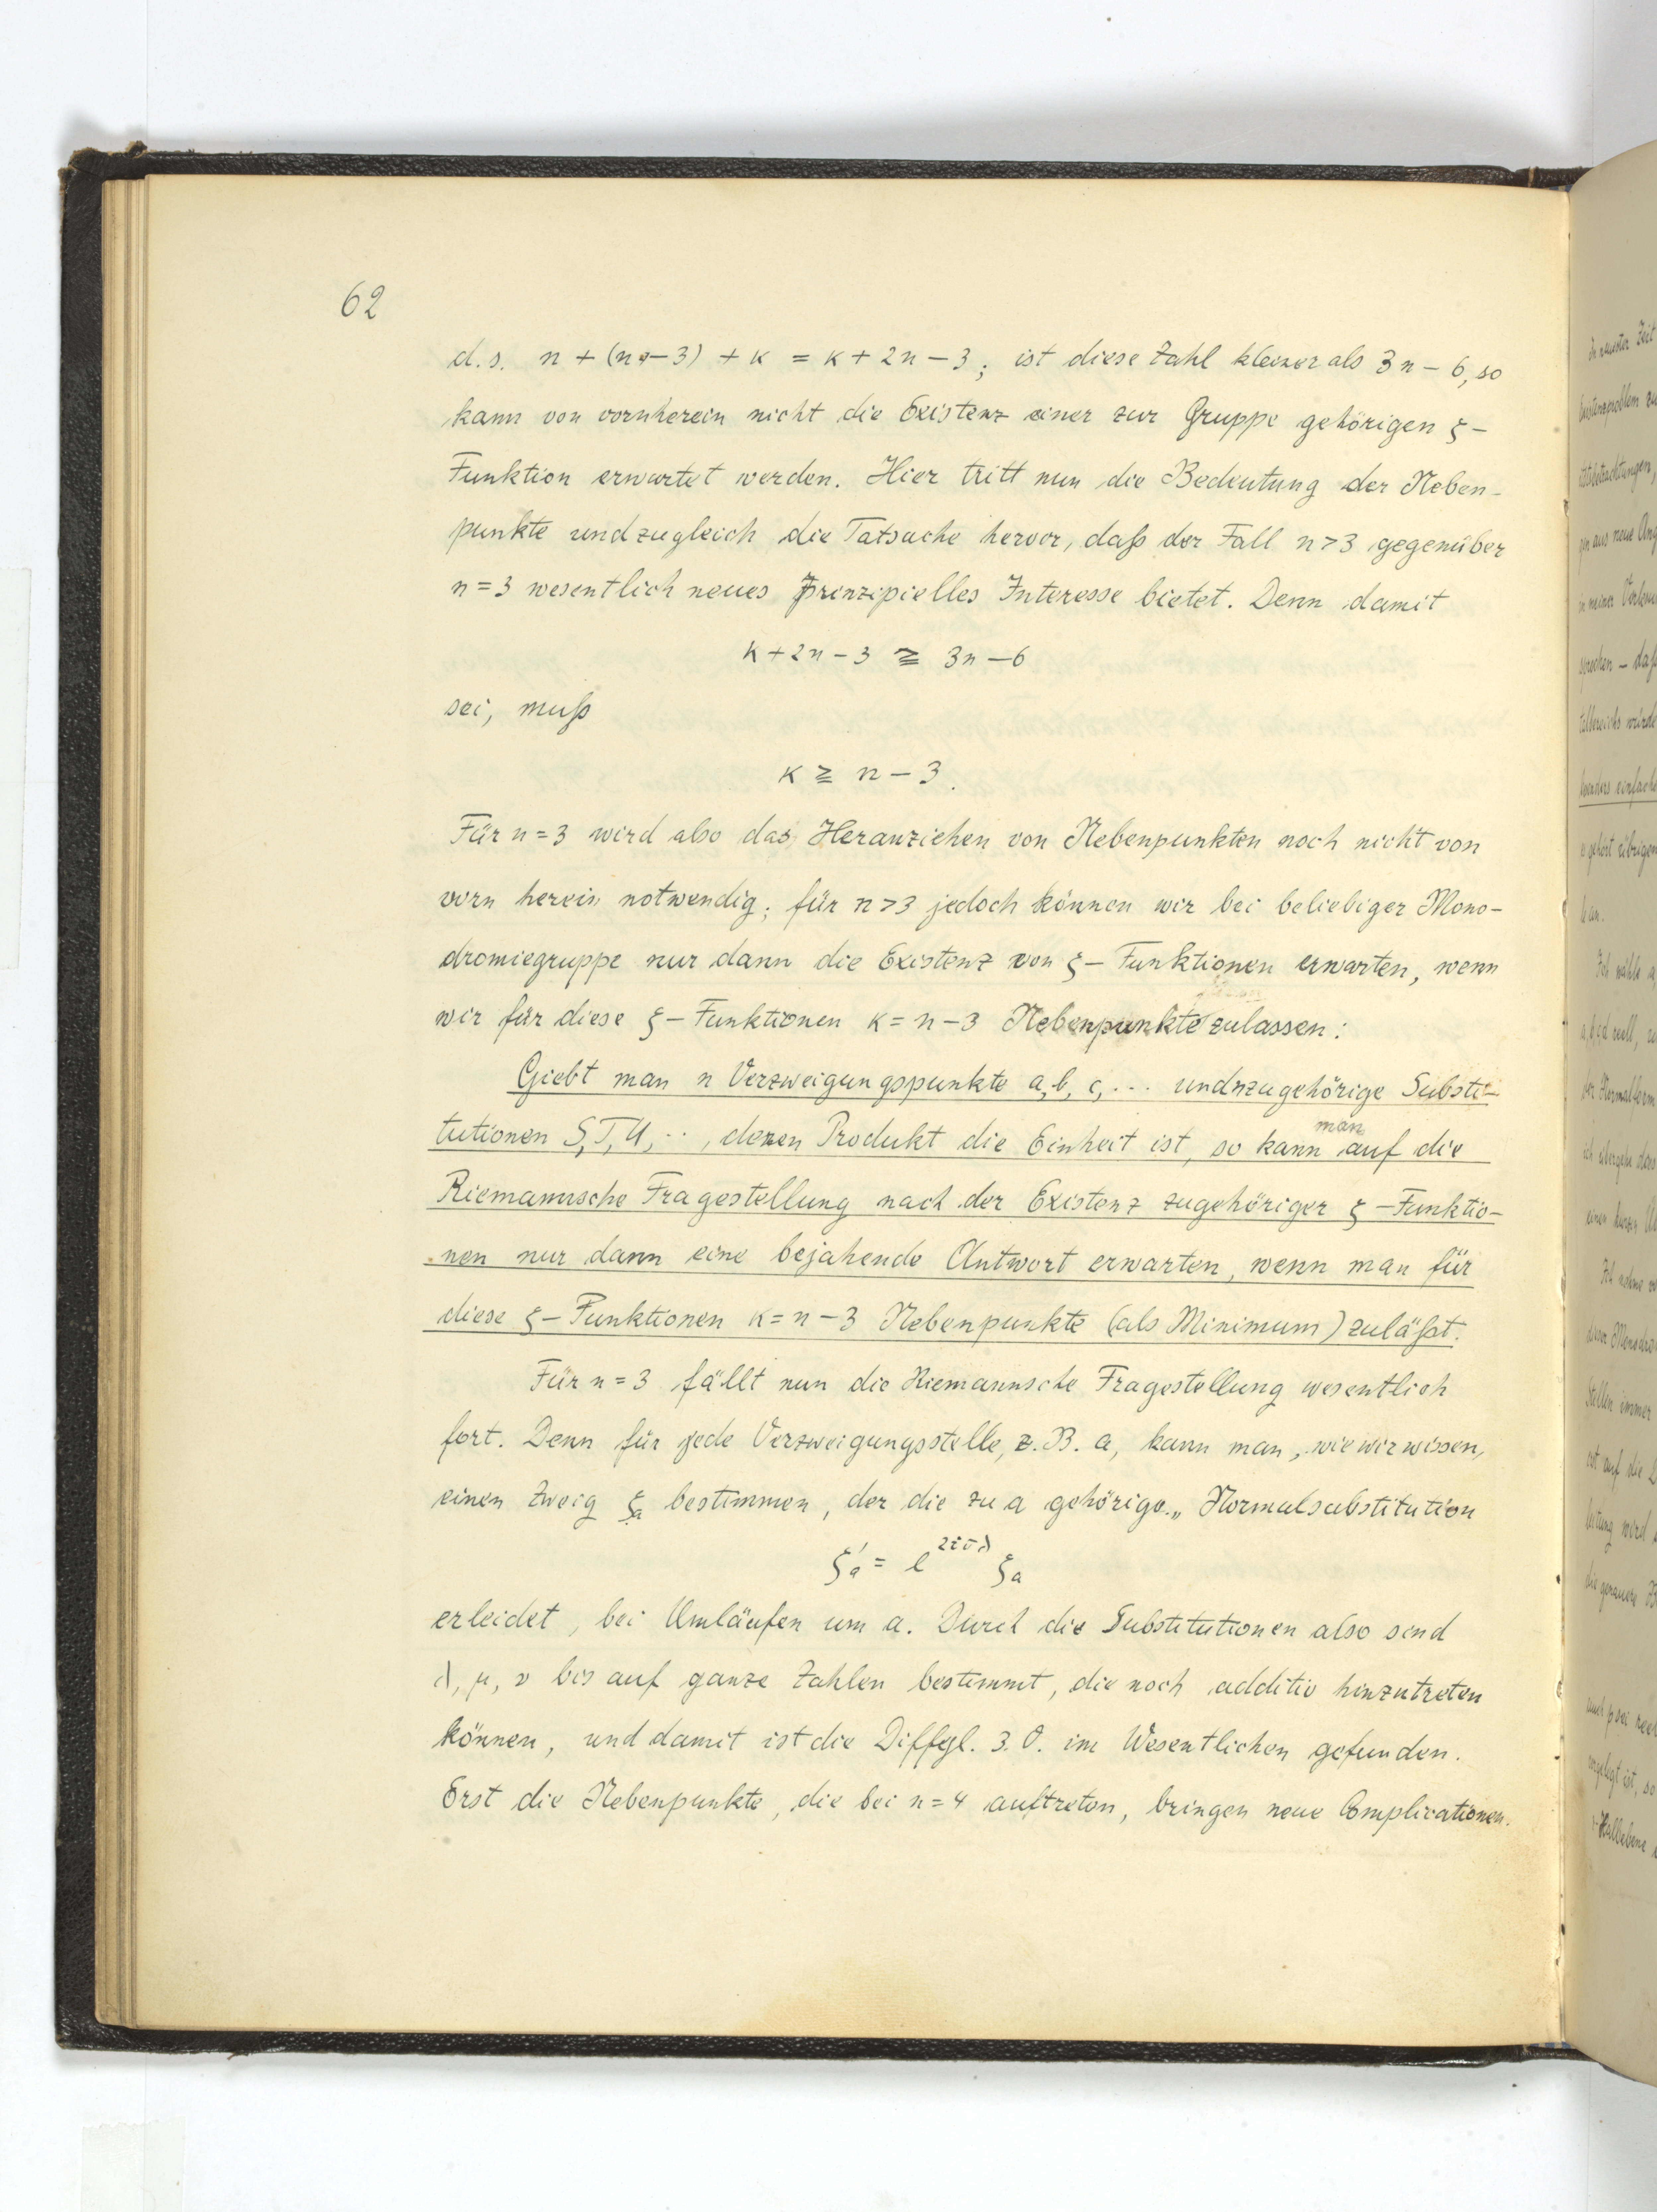 62
d. s. n + (n-3) + κ = κ + 2n - 3; ist diese Zahl kleiner als 3n - 6, so
kann von vornherein nicht die Existenz einer zur Gruppe gehörigen ξ-
Funktion erwartet werden. Hier tritt nun die Bedeutung der Neben-
punkte und zugleich die Tatsache hervor, daß der Fall n>3 gegenüber
n=3 wesentlich neues prinzipielles Interesse bietet. Denn damit
κ+2n-3 ≧ 3n-6
sei, muß
κ ≧ n-3.
Für n=3 wird also das Heranziehen von Nebenpunkten noch nicht von
vorn herein notwendig; für n>3 jedoch können wir bei beliebiger Mono-
dromiegruppe nur dann die Existenz von ξ-Funktionen erwarten, wenn
wir für diese ξ-Funktionen κ=n-3 Nebenpunkte zulassen:
Giebt man n Verzweigungspunkte a, b, c, ... und n zugehörige Substi-
tutionen S, T, U, .., deren Produkt die Einheit ist, so kann man auf die
Riemannsche Fragestellung nach der Existenz zugehöriger ξ-Funktio-
nen nur dann eine bejahende Antwort erwarten, wenn man für
diese ξ-Funktionen κ=n-3 Nebenpunkte (als Minimum) zuläßt.
Für n=3 fällt nun die Riemannsche Fragestellung wesentlich
fort. Denn für jede Verzweigungsstelle, z. B. a, kann man, wie wir wissen,
einen Zweig ξₐ bestimmen, der die zu a gehörige „Normalsubstitution
ξ'ₐ = e^{2iπλ} ξₐ
erleidet, bei Umläufen um a. Durch die Substitutionen also sind
λ, μ, ν bis auf ganze Zahlen bestimmt, die noch additiv hinzutreten
können, und damit ist die Diffgl. 3. O. im Wesentlichen gefunden.
Erst die Nebenpunkte, die bei n=4 auftreten, bringen neue Complicationen.